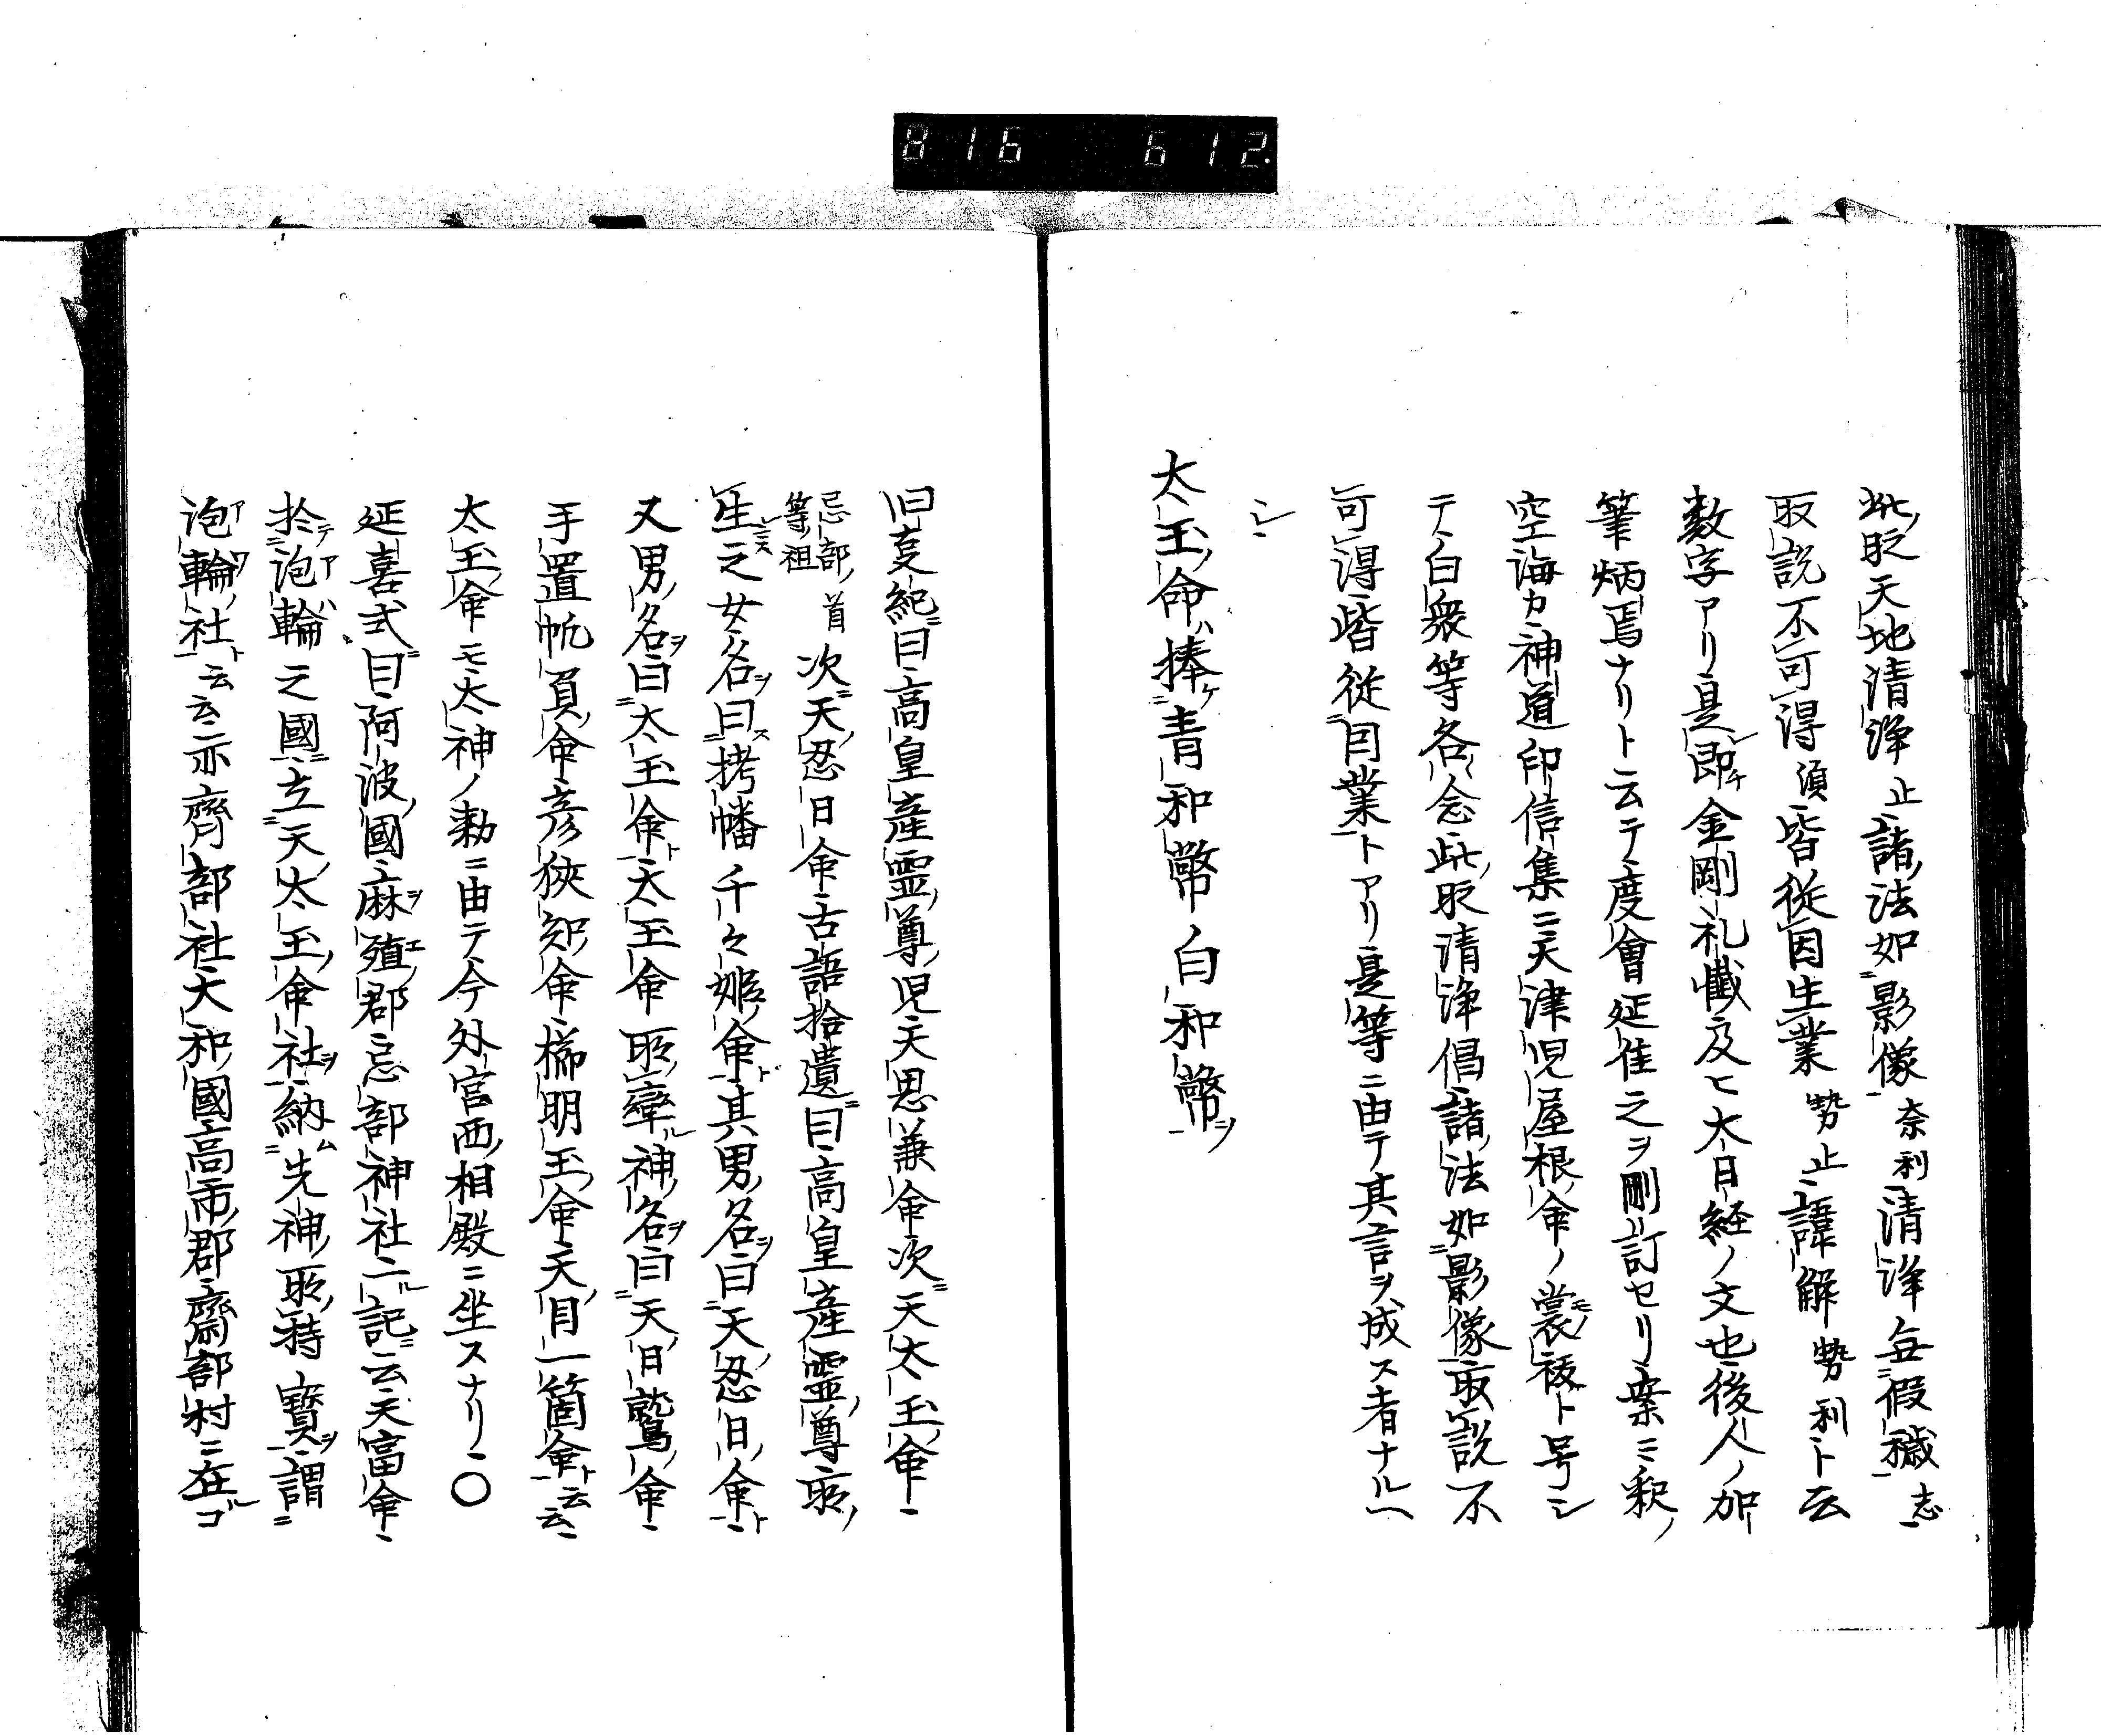 816 612
此, 眨天地清浄止諸法如影像奈利清浄無假穢志
取説不可得須皆從因生業勢止諱解勢利ト云
数字アリ是即チ金剛礼懺及ヒ大日経ノ文也後人ノ加
筆炳焉ナリト云テ度會延佳之ヲ刪訂セリ案ニ釈ノ
空海カ神道印信集ニ天津児屋根命ノ裳祓ト号シ
テ白衆等各念此時清浄倡諸法如影像取説不
可得皆從因業トアリ是等ニ由テ其言ヲ成ス者ナルヘ
シ
太玉命ハ捧ケ青和幣白和幣ヲ
旧事紀ニ曰高皇産霊尊児天思兼命次ニ天太玉命
忌部首等祖次ニ天忍日命古語拾遺ニ曰高皇産霊尊所ノ
生之女名ヲ曰ス栲幡千々姫命ト其男ノ名ヲ曰天忍日命ト
又男ノ名ヲ曰太玉命ト太玉命所率ル神ノ名ヲ曰天日鷲命
手置帆負命彦狭知命櫛明玉命天目一箇命ト云云
太玉命モ太神ノ勅ニ由テ今外宮西相殿ニ坐スナリ〇
延喜式ニ曰阿波國麻殖郡忌部神社ニ記ニ云天富命
於テ泡輪之國ニ立天太玉命社ヲ納ム先神所持寶ヲ謂
泡輪社ト云云亦齊部社大和國高市郡齋部村ニ在ルコ